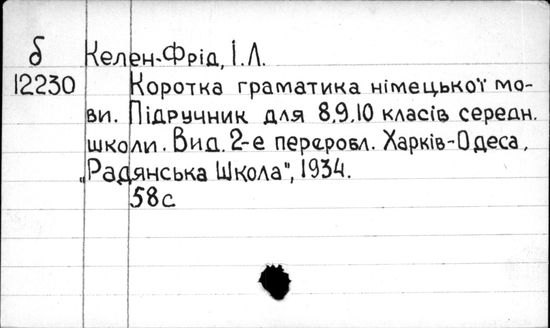 б Келен-Фрід, І.Л.
12230 Коротка граматика німецької мо-
ви. Підручник для 8,9,10 класів середн.
школи. Вид. 2-е перероbл. Харків-Одеса,
„Радянська Школа", 1934.
58с